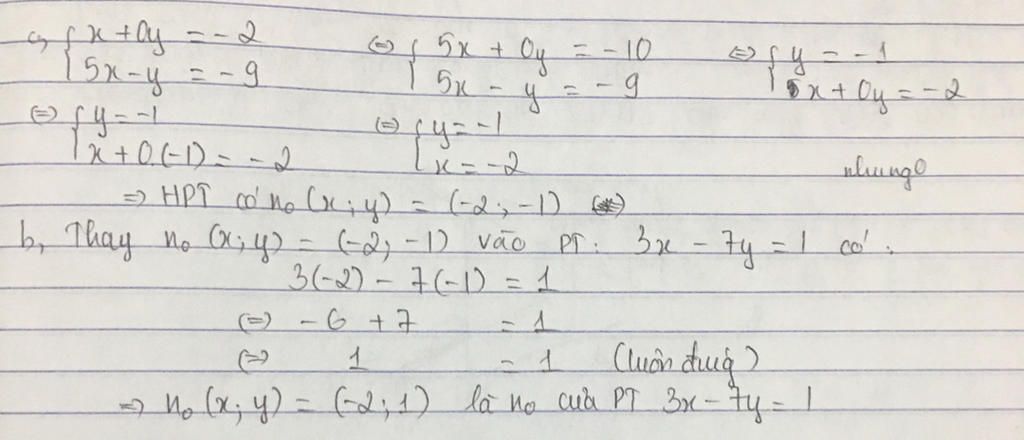 a, { x + 0y = -2 (=) { 5x + 0y = -10 (=) { y = -1
5x - y = -9 5x - y = -9 x + 0y = -2
(=) { y = -1 (=) { y = -1
x + 0.(-1) = -2 x = -2
nhung0
=) HPT có no (x; y) = (-2; -1)
b, Thay no (x; y) = (-2; -1) vào PT: 3x - 7y = 1 có:
3(-2) - 7(-1) = 1
(=) -6 + 7 = 1
(=) 1 = 1 (luôn đúng)
=) no (x; y) = (-2; 1) là no của PT 3x - 7y = 1